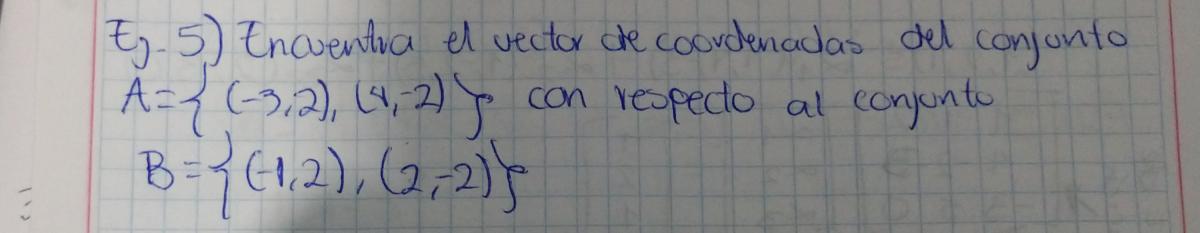 Ej. 5) Encuentra el vector de coordenadas del conjunto
A={(-3,2), (4,-2)} con respecto al conjunto
B={(-1,2), (2,-2)}